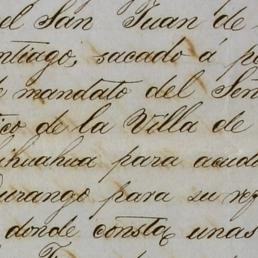 el San Juan de
ntiago, sacado a p
e mandato del Señ
ico de la Villa de
hihuahua para acudi
urango para su reg
donde consta, unas